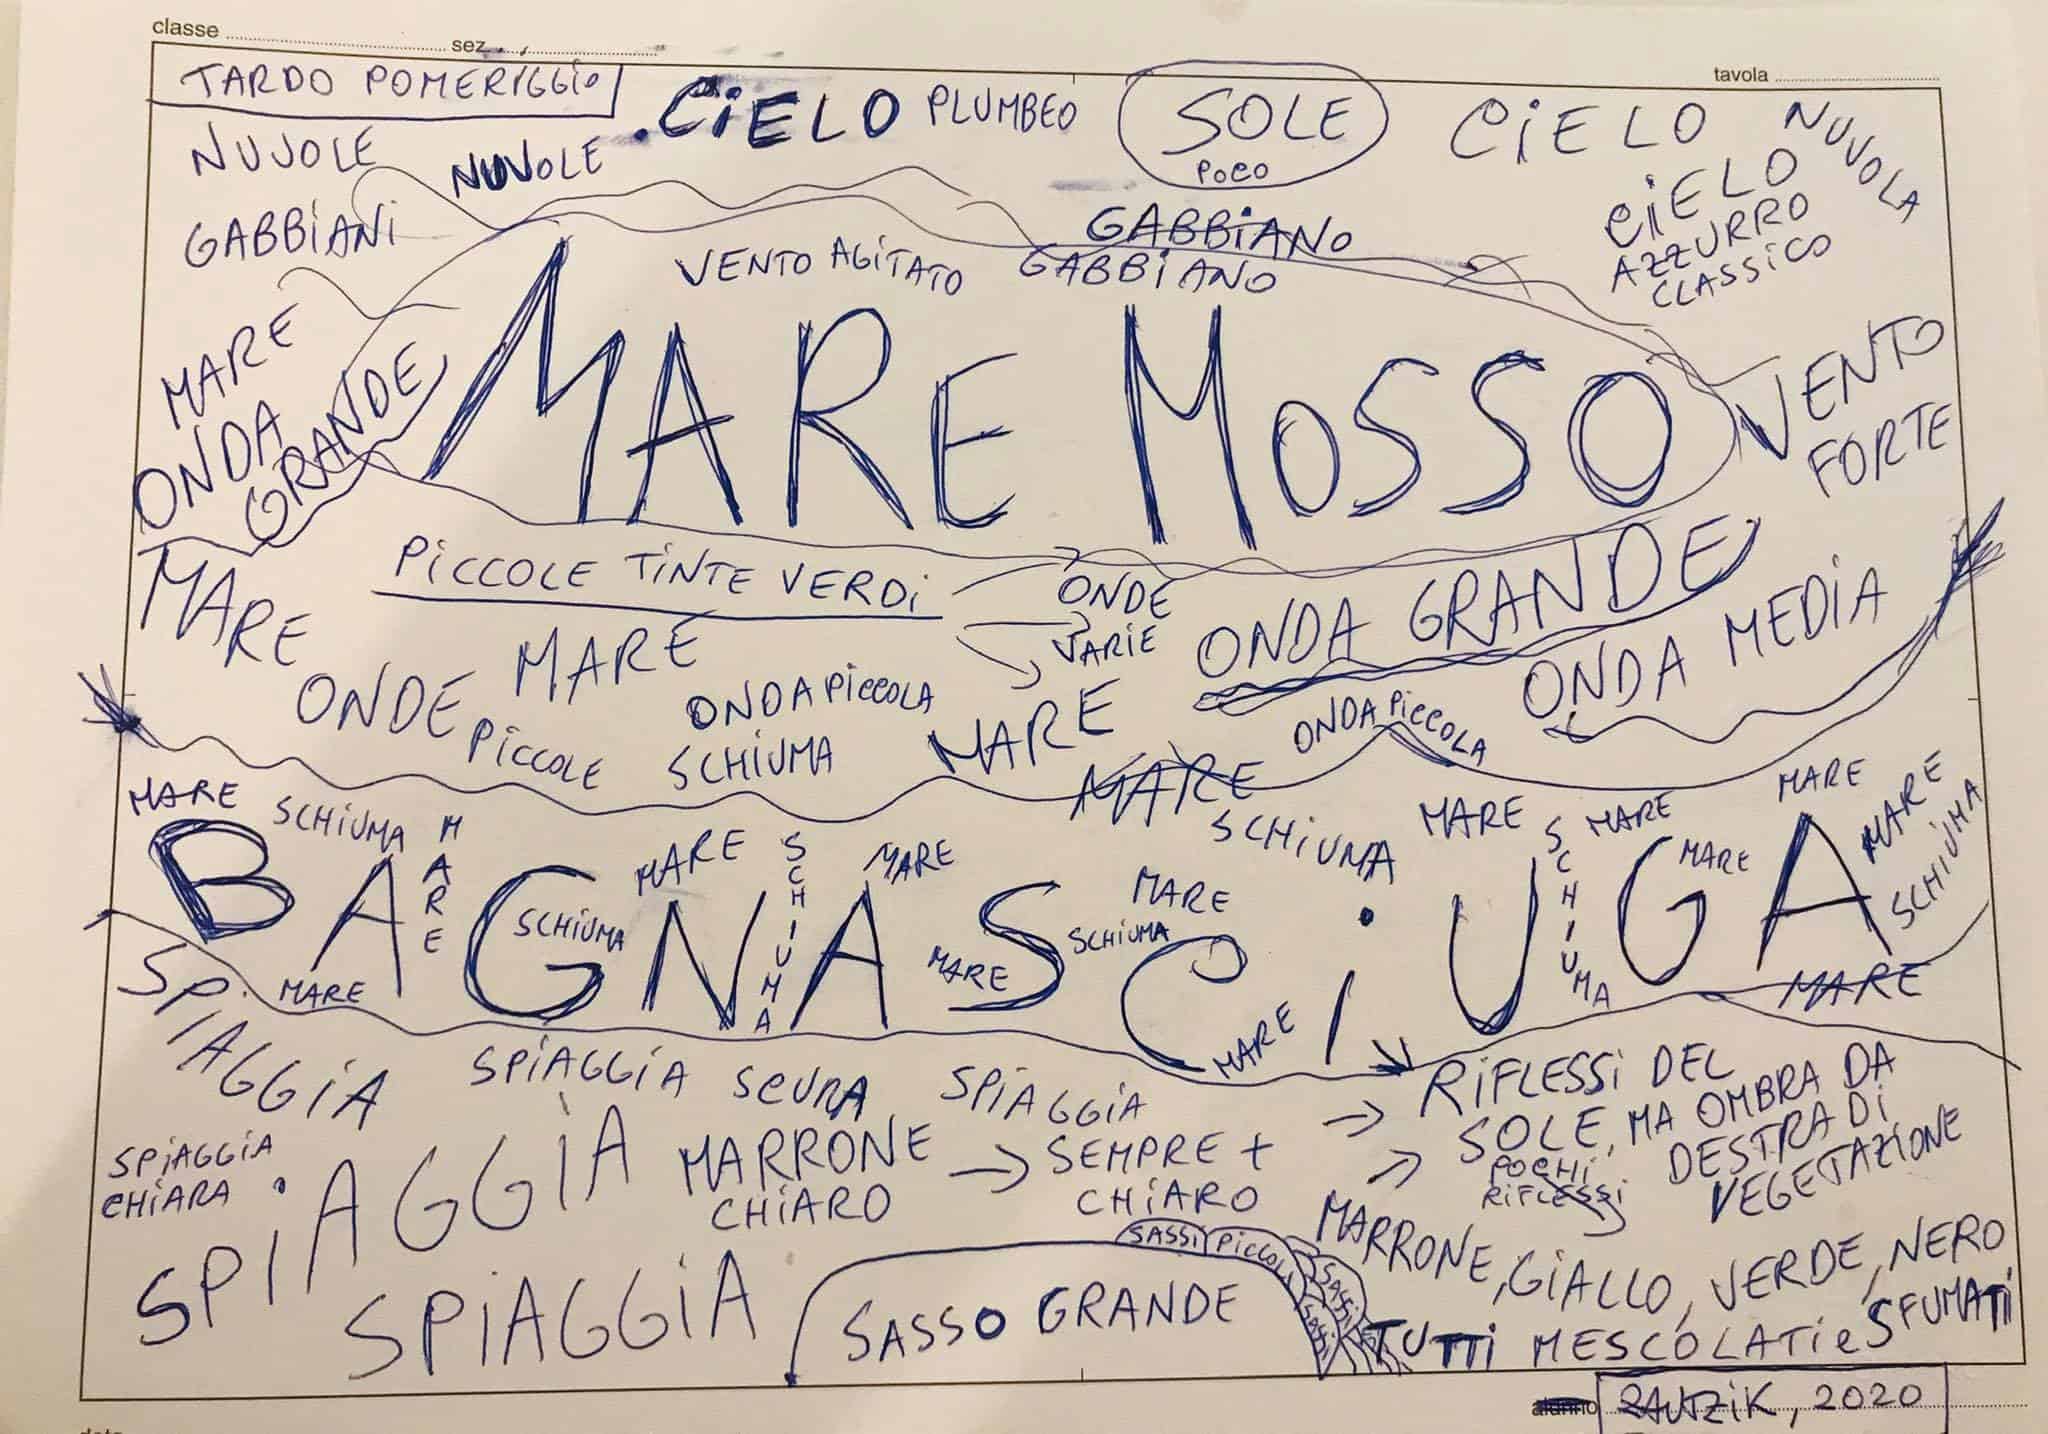 classe
sez.
tavola
TARDO POMERIGGIO
CIELO PLUMBEO
SOLE
POCO
CIELO
NUVOLA
NUVOLE
NUVOLE
CIELO
AZZURRO
CLASSICO
GABBIANI
GABBIANO
GABBIANO
VENTO AGITATO
MARE
ONDA
GRANDE
MARE MOSSO
VENTO
FORTE
MARE
PICCOLE TINTE VERDI
ONDE
VARIE
ONDA GRANDE
ONDA MEDIA
ONDE
PICCOLE
MARE
ONDA PICCOLA
SCHIUMA
MARE
ONDA PICCOLA
MARE
MARE
SCHIUMA
MARE
MARE
SCHIUMA
MARE
SCHIUMA
MARE
SCHIUMA
MARE
MARE
MARE
SCHIUMA
BAGNASCIUGA
MARE
SCHIUMA
MARE
MARE
SCHIUMA
MARE
MARE
MARE
MARE
SPIAGGIA
SPIAGGIA SCURA
SPIAGGIA
SPIAGGIA
CHIARA
SPIAGGIA
MARRONE
CHIARO
SEMPRE +
CHIARO
RIFLESSI DEL
SOLE, MA OMBRA DA
DESTRA DI
VEGETAZIONE
POCHI
RIFLESSI
SPIAGGIA
SASSO GRANDE
SASSI PICCOLI
SASSI
MARRONE, GIALLO, VERDE, NERO
TUTTI MESCOLATI e SFUMATI
alunno
, 2020